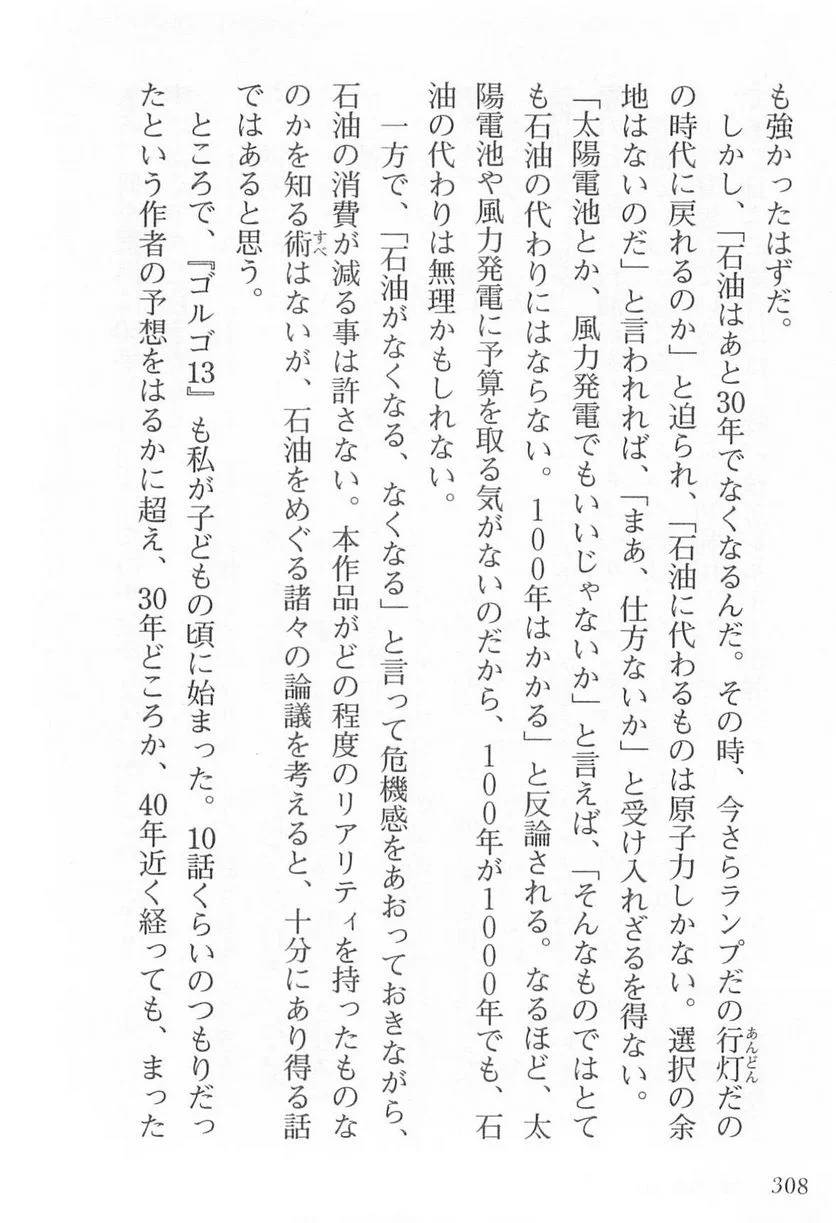 も強かったはずだ。
しかし、「石油はあと30年でなくなるんだ。その時、今さらランプだの行灯だの
の時代に戻れるのか」と迫られ、「石油に代わるものは原子力しかない。選択の余
地はないのだ」と言われれば、「まあ、仕方ないか」と受け入れざるを得ない。
「太陽電池とか、風力発電でもいいじゃないか」と言えば、「そんなものではとて
も石油の代わりにはならない。100年はかかる」と反論される。なるほど、太
陽電池や風力発電に予算を取る気がないのだから、100年が1000年でも、石
油の代わりは無理かもしれない。
一方で、「石油がなくなる、なくなる」と言って危機感をあおっておきながら、
石油の消費が減る事は許さない。本作品がどの程度のリアリティを持ったものな
のかを知る術はないが、石油をめぐる諸々の論議を考えると、十分にあり得る話
ではあると思う。
ところで、『ゴルゴ13』も私が子どもの頃に始まった。10話くらいのつもりだっ
たという作者の予想をはるかに超え、30年どころか、40年近く経っても、まった
あんどん
すべ
308